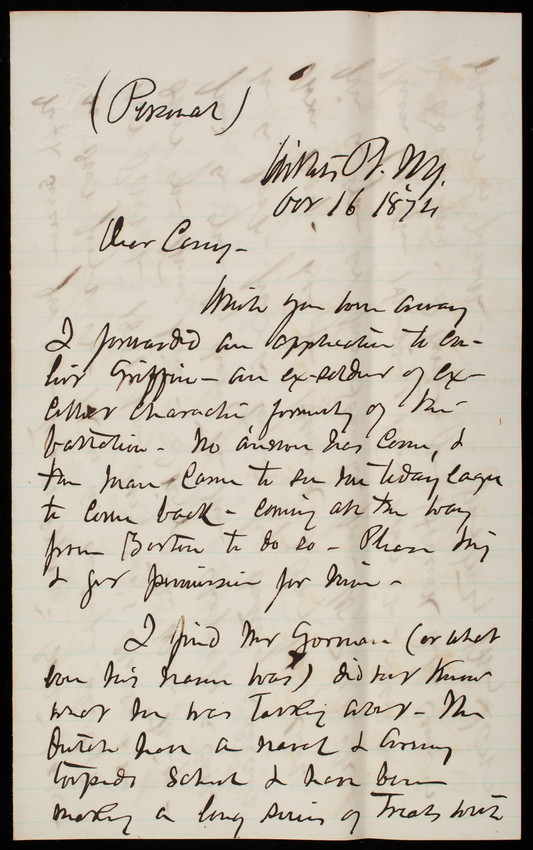 (Personal)
Willets Pt. N.Y.
Nov 16 1874
Dear Casey -
While you were away
I forwarded an application to en-
list Griffin - an ex-soldier of ex-
cellent character formerly of this
battalion - No answer has come, &
the man came to see me today eager
to come back - coming all the way
from Boston to do so - Please try
& get permission for him -
I find Mr Gorman (or what
ever his name was) did not know
what he was talking about - The
Dutch have a naval & army
torpedo school & have been
making a long series of trials with